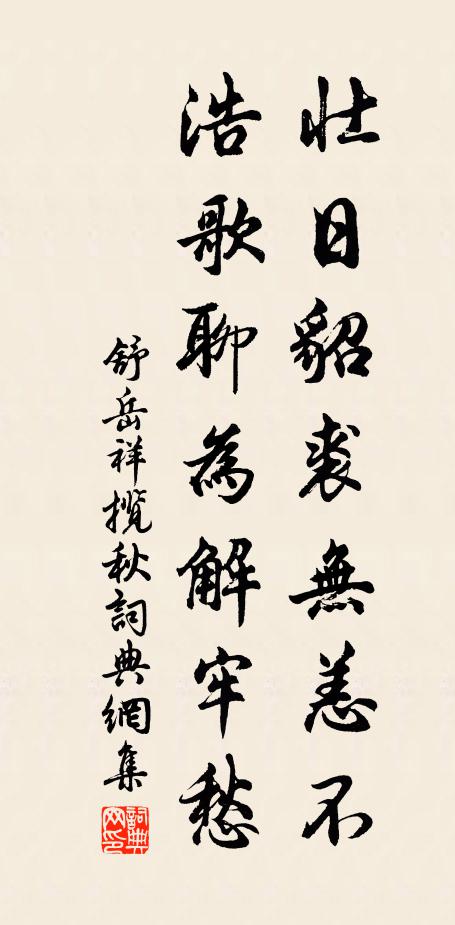 壮日貂裘無恙不
浩歌聊為解牢愁
舒岳祥攬秋詞典網集
詞典
网印